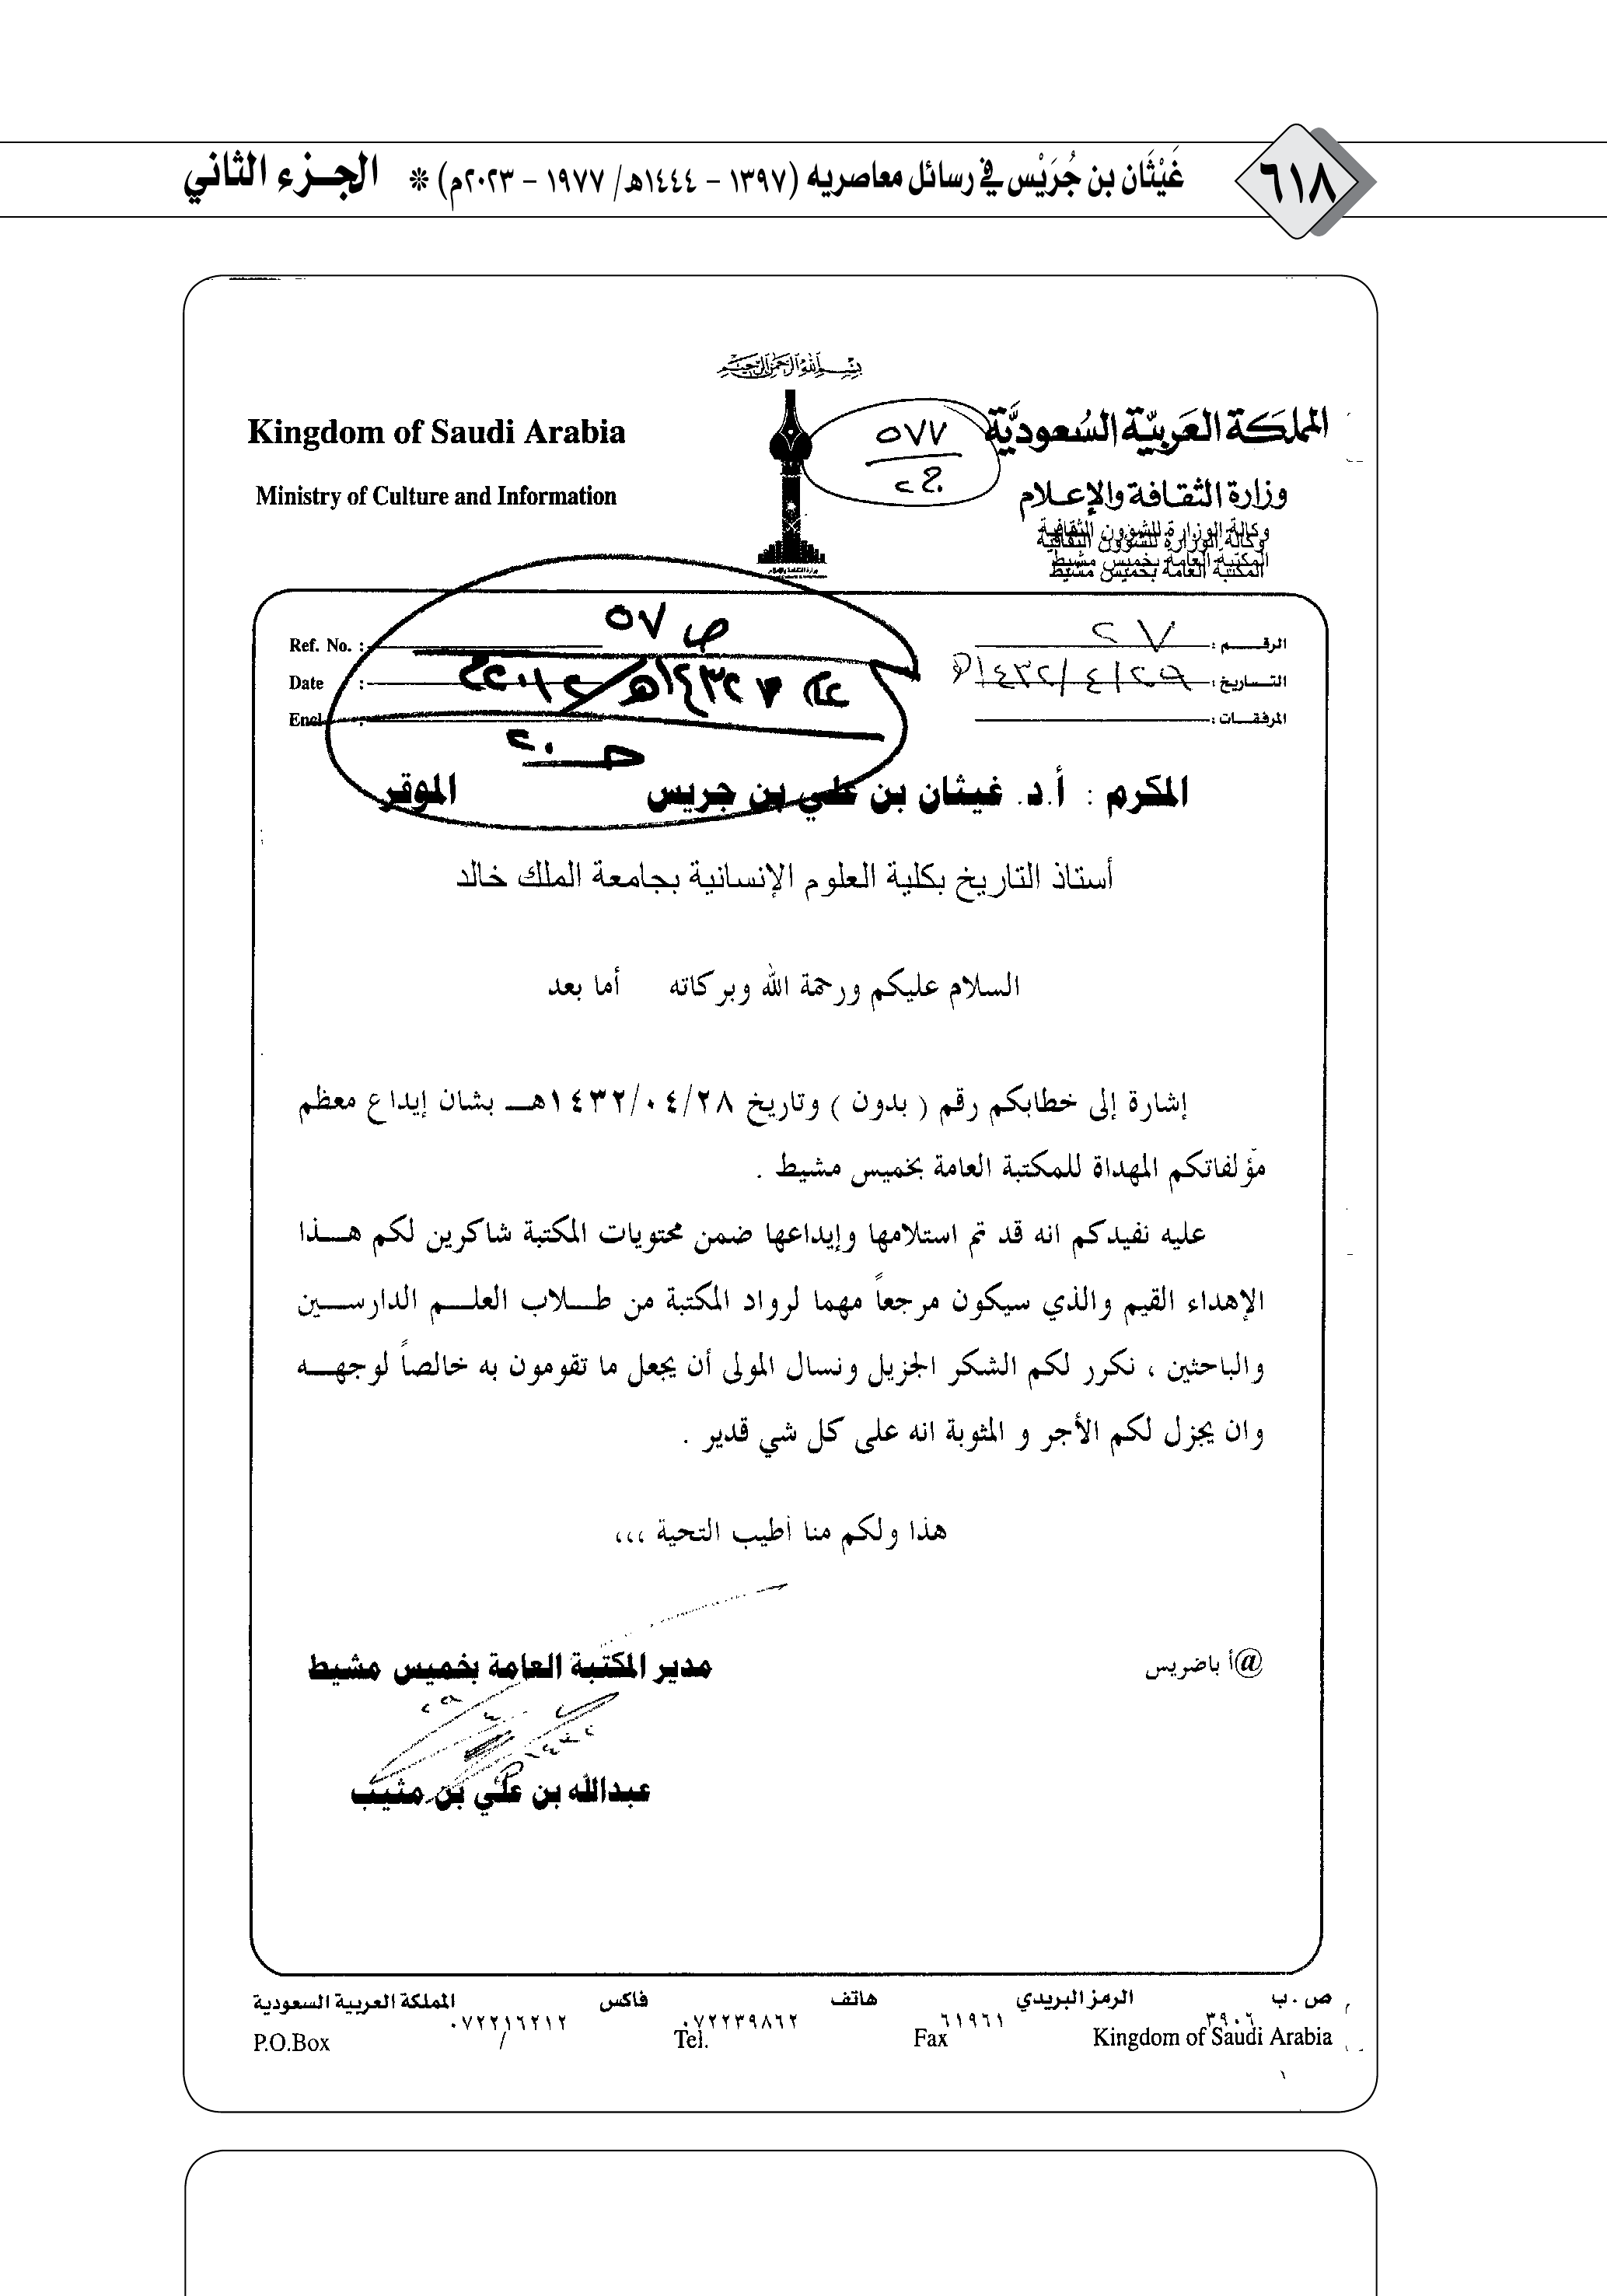 ٦١٨
غَيْثَان بن جُرَيْس في رسائل معاصريه (١٣٩٧ - ١٤٤٤هـ/ ١٩٧٧ - ٢٠٢٣م) * الجزء الثاني
بسم الله الرحمن الرحيم
المملكة العربية السعودية
وزارة الثقافة والإعلام
وكالة الوزارة للشؤون الثقافية
المكتبة العامة بخميس مشيط
Kingdom of Saudi Arabia
Ministry of Culture and Information
٥٧٧
ج٢
الرقم : ٢٧
التاريخ : ٢٩/٤/١٤٣٢هـ
المرفقات :
Ref. No. :
Date :
Encl :
ص ٥٧
المكرم : أ.د. غيثان بن علي بن جريس الموقر
أستاذ التاريخ بكلية العلوم الإنسانية بجامعة الملك خالد
السلام عليكم ورحمة الله وبركاته أما بعد
إشارة إلى خطابكم رقم ( بدون ) وتاريخ ١٤٣٢/٠٤/٢٨هـ بشان إيداع معظم
مؤلفاتكم المهداة للمكتبة العامة بخميس مشيط .
عليه نفيدكم انه قد تم استلامها وإيداعها ضمن محتويات المكتبة شاكرين لكم هذا
الإهداء القيم والذي سيكون مرجعاً مهما لرواد المكتبة من طلاب العلم الدارسين
والباحثين ، نكرر لكم الشكر الجزيل ونسال المولى أن يجعل ما تقومون به خالصاً لوجهه
وان يجزل لكم الأجر و المثوبة انه على كل شي قدير .
هذا ولكم منا أطيب التحية ،،،
@أ باضريس
مدير المكتبة العامة بخميس مشيط
عبدالله بن علي بن مثيب
ص . ب ٣٩٠٦ الرمز البريدي ٦١٩٦١ هاتف ٠٧٢٢٣٩٨٦٢ فاكس ٠٧٢٢١٦٢١٢ المملكة العربية السعودية
P.O.Box / Tel. Fax Kingdom of Saudi Arabia